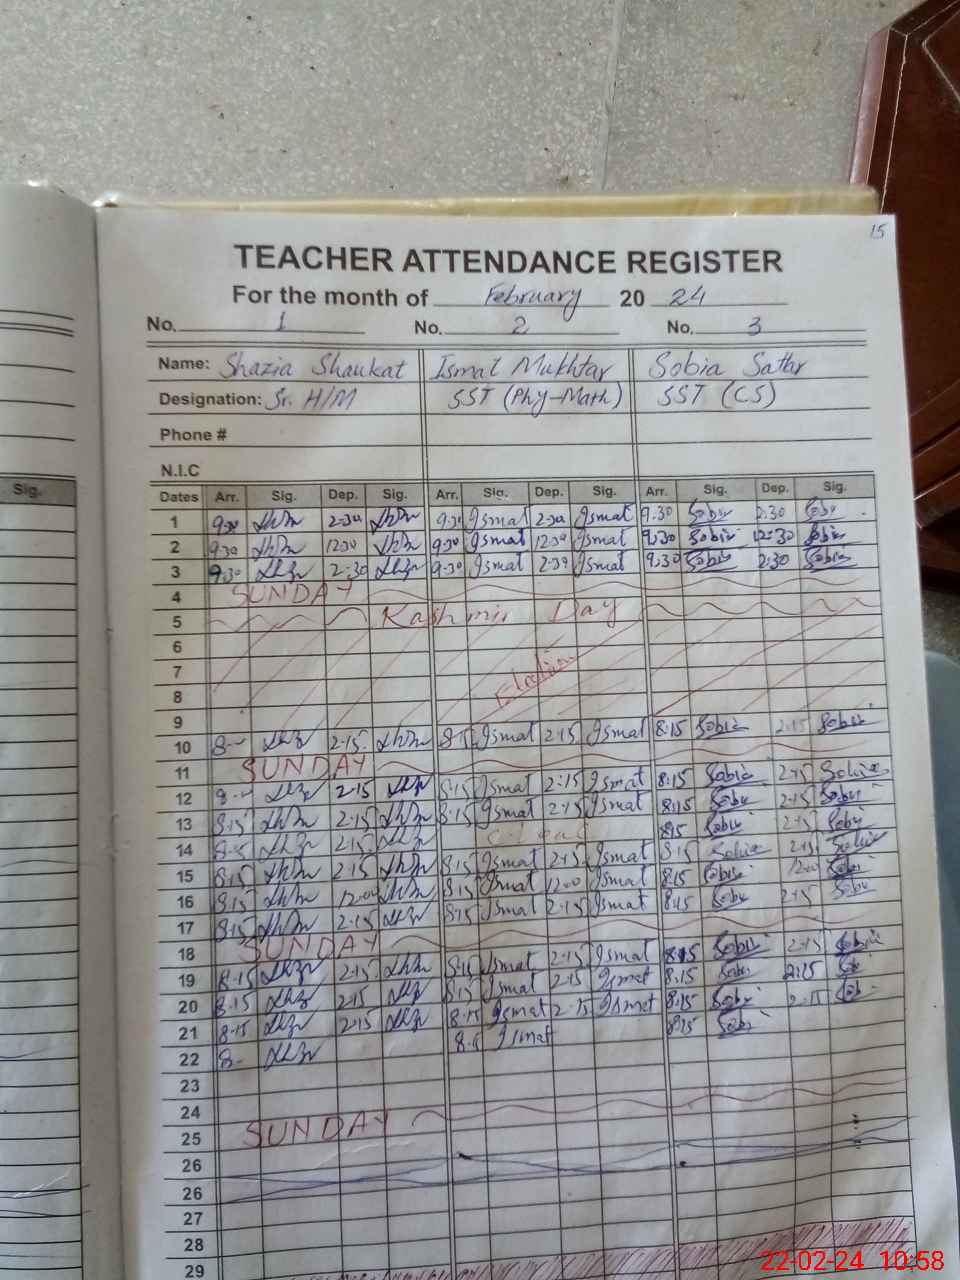 15
TEACHER ATTENDANCE REGISTER
For the month of February 20 24
No. 1 No. 2 No. 3
Name: Shazia Shaukat Ismat Mukhtar Sobia Sattar
Designation: Sr. H/M SST (Phy-Math) SST (CS)
Phone #
N.I.C
Sig.
Dates Arr. Sig. Dep. Sig. Arr. Sig. Dep. Sig. Arr. Sig. Dep. Sig.
1 9:30 2:30 9:30 Ismat 2:30 Ismat 9:30 Sobia 2:30 Sobia
2 9:30 12:30 9:30 Ismat 12:30 Ismat 9:30 Sobia 12:30 Sobia
3 9:30 2:30 9:30 Ismat 2:30 Ismat 9:30 Sobia 2:30 Sobia
4 SUNDAY
5 Kashmir Day
6
7 Election
8
9
10 8- 2:15 8:15 Ismat 2:15 Ismat 8:15 Sobia 2:15 Sobia
11 SUNDAY
12 8- 2:15 8:15 Ismat 2:15 Ismat 8:15 Sobia 2:15 Sobia
13 8:15 2:15 8:15 Ismat 2:15 Ismat 8:15 Sobia 2:15 Sobia
14 2:15 8:15 Sobia 2:15 Sobia
15 8:15 2:15 8:15 Ismat 2:15 Ismat 8:15 Sobia 2:15 Sobia
16 8:15 12:00 8:15 Ismat 12:00 Ismat 8:15 Sobia 12:00 Sobia
17 8:15 2:15 8:15 Ismat 2:15 Ismat 8:15 Sobia 2:15 Sobia
18 SUNDAY
19 8:15 2:15 8:15 Ismat 2:15 Ismat 8:15 Sobia 2:15 Sobia
20 8:15 2:15 8:15 Ismat 2:15 Ismat 8:15 Sobia 2:15 Sobia
21 8:15 2:15 8:15 Ismat 2:15 Ismat 8:15 Sobia 2:15 Sobia
22 8- Ismat 8:15 Sobia
23
24
25 SUNDAY
26
26
27
28
29
22-02-24 10:58